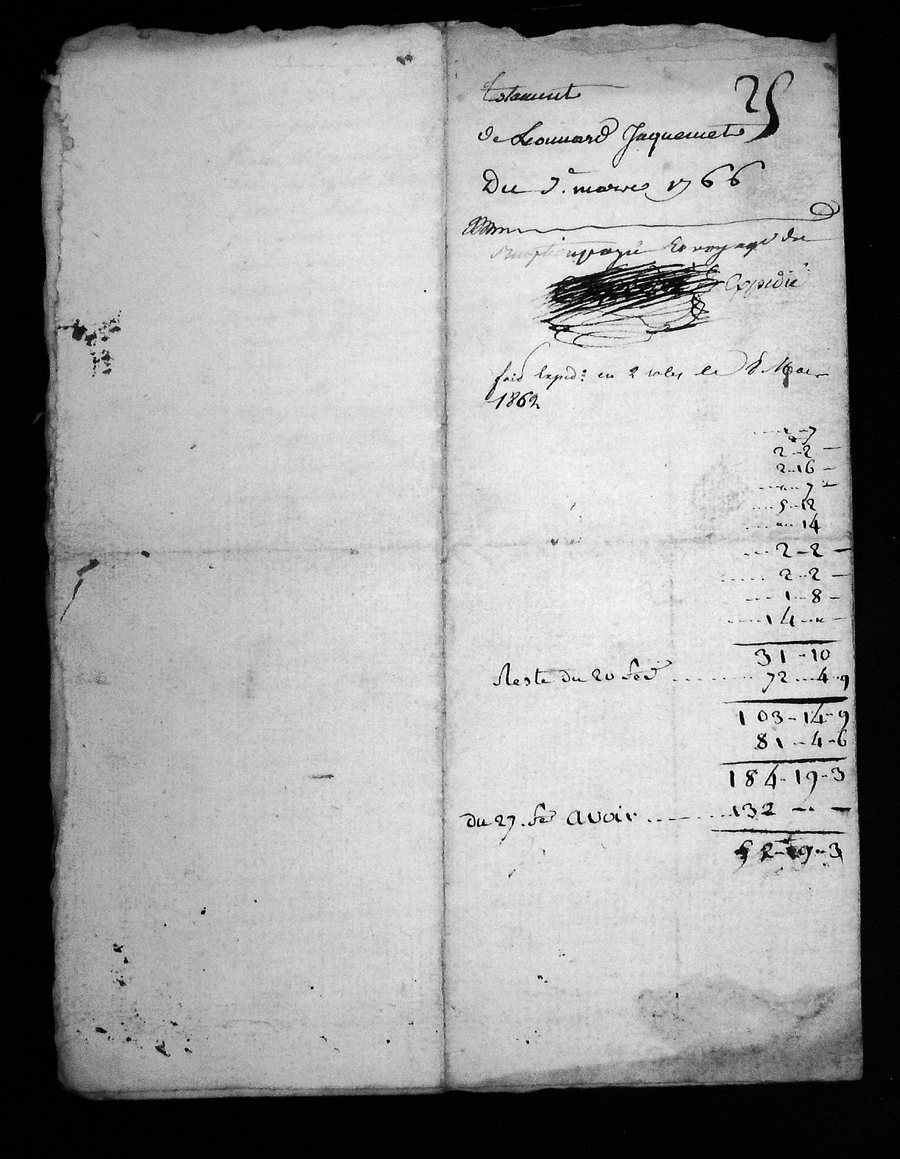 25
testament
de Leonnard Jaquemet
Du 7.e mars 1766
payé Et voyage du
Expedié
fait Exped: en 2 roles le 8 Mars
1862
7
2 - 2 -
2 - 16 -
7
5 - 12
14
2 - 2 -
2 - 2 -
1 - 8 -
14
31 - 10
Reste du 20 fev 72 - 4 - 9
103 - 14 - 9
81 - 4 - 6
184 - 19 - 3
du 27. fe avoir 132 - -
52 - 19 - 3